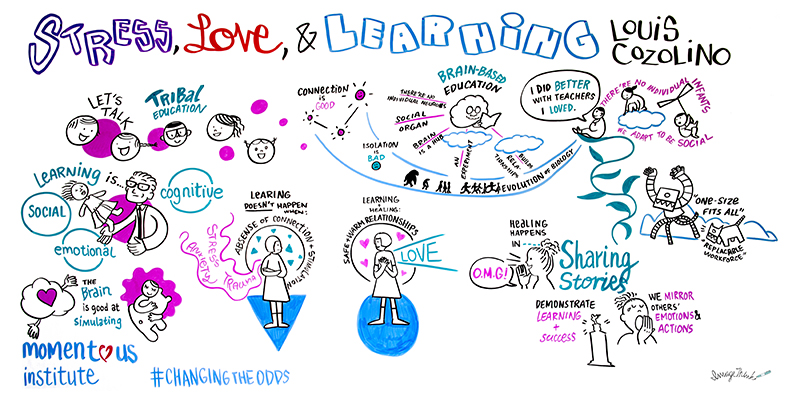 STRESS, LOVE, & LEARNING
LOUIS
COZOLINO
LET'S
TALK
TRIBAL
EDUCATION
CONNECTION
IS
GOOD
ISOLATION
IS
BAD
THERE'RE NO
INDIVIDUAL NEURONS
SOCIAL
ORGAN
BRAIN
IS A HUB
BRAIN-BASED
EDUCATION
AN
EXPERIMENT
BUILM
RELA-
TIONSHIPS
EVOLUTION OF BIOLOGY
I DID BETTER
WITH TEACHERS
I LOVED.
THERE'RE NO INDIVIDUAL
INFANTS
WE ADAPT TO BE SOCIAL
LEARNING
is...
SOCIAL
cognitive
emotional
THE
Brain
is good at
simulating
LEARING
DOESN'T HAPPEN
WHEN:
ABSENSE OF CONNECTION + STIMULATION
STRESS
TRAUMA
ANXIETY
LEARNING
is HEALING:
SAFE + WARM RELATIONSHIPS
LOVE
HEALING
HAPPENS
IN ----
O.M.G!
Sharing
Stories
"ONE-SIZE
FITS ALL"
"REPLACABLE
WORKFORCE"
DEMONSTRATE
LEARNING
+
SUCCESS
WE MIRROR
OTHERS'
EMOTIONS &
ACTIONS
momentous
institute
#CHANGING THE ODDS
ImageThink